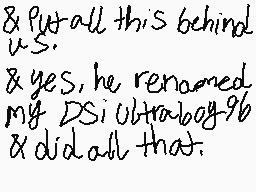 & Put all this behind
us.
& yes, he renamed
my DSi Ultraboy96
& did all that.